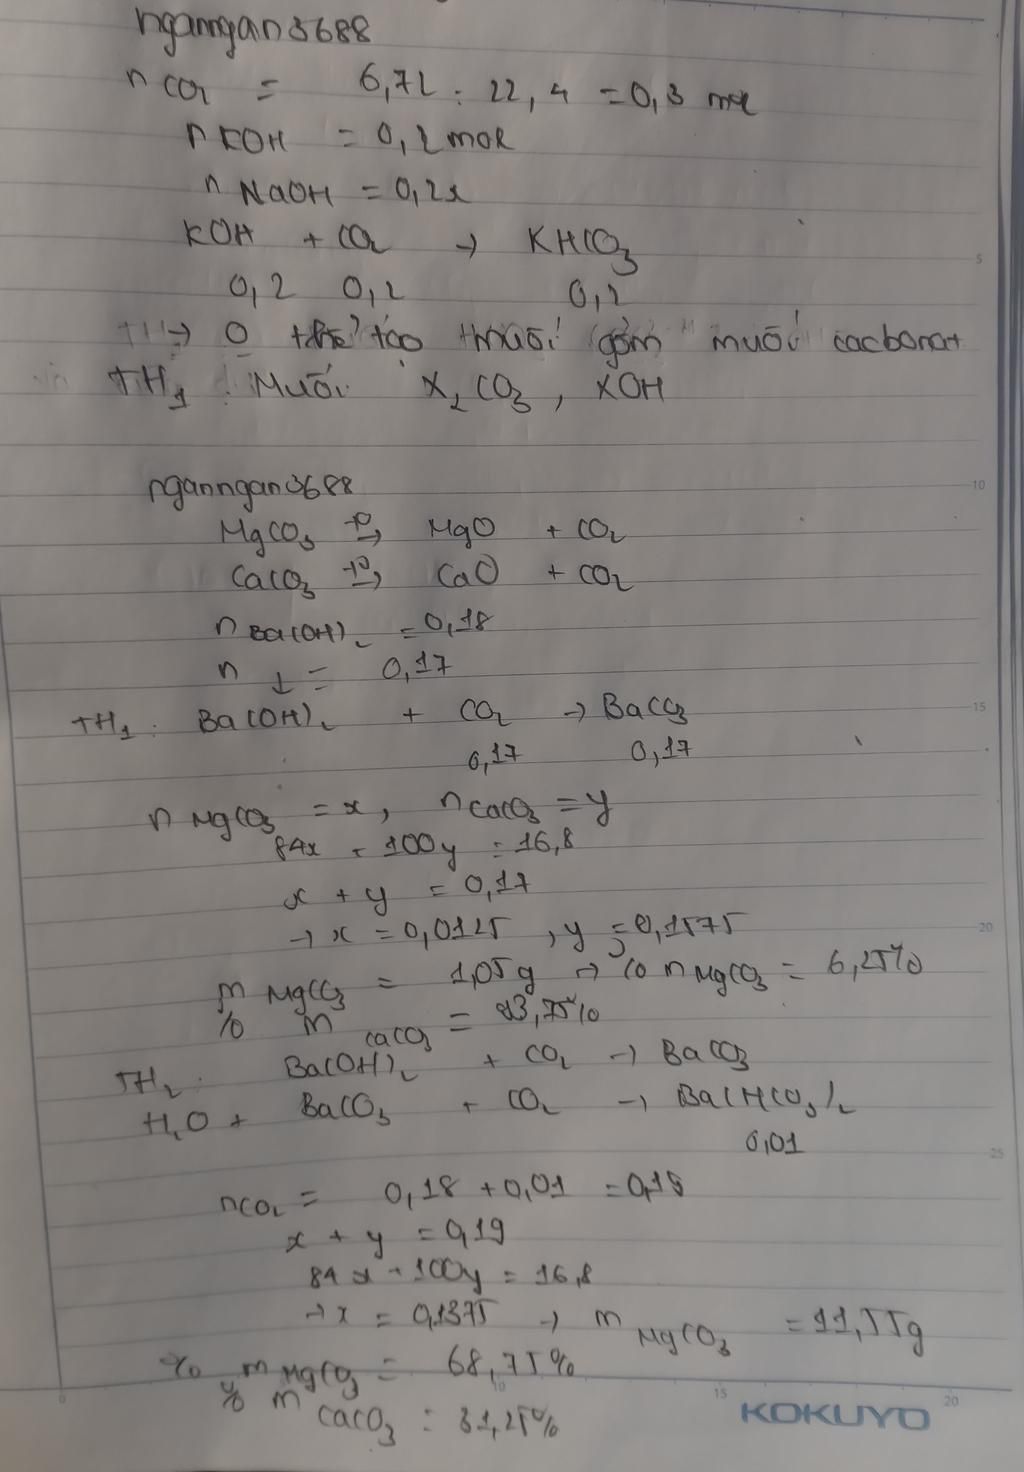 nganngan3688
n CO2 = 6,72 : 22,4 = 0,3 mol
n KOH = 0,2 mol
n NaOH = 0,2x
KOH + CO2 → KHCO3
0,2 0,2 0,2
TH→ 0 thể tạo muối gồm muối cacbonat
TH1 : Muối X2CO3, XOH
nganngan3688
MgCO3 →t° MgO + CO2
CaCO3 →t° CaO + CO2
n Ba(OH)2 = 0,18
n ↓ = 0,17
TH1 : Ba(OH)2 + CO2 → BaCO3
0,17 0,17
n MgCO3 = x, n CaCO3 = y
84x + 100y = 16,8
x + y = 0,17
→ x = 0,0125, y = 0,1575
m MgCO3 = 1,05g → % m MgCO3 = 6,25%
% m CaCO3 = 93,75%
TH2 : Ba(OH)2 + CO2 → BaCO3
H2O + BaCO3 + CO2 → Ba(HCO3)2
0,01
nCO2 = 0,18 + 0,01 = 0,19
x + y = 0,19
84x + 100y = 16,8
→ x = 0,1375 → m MgCO3 = 11,55g
% m MgCO3 = 68,75%
% m CaCO3 = 31,25%
KOKUYO